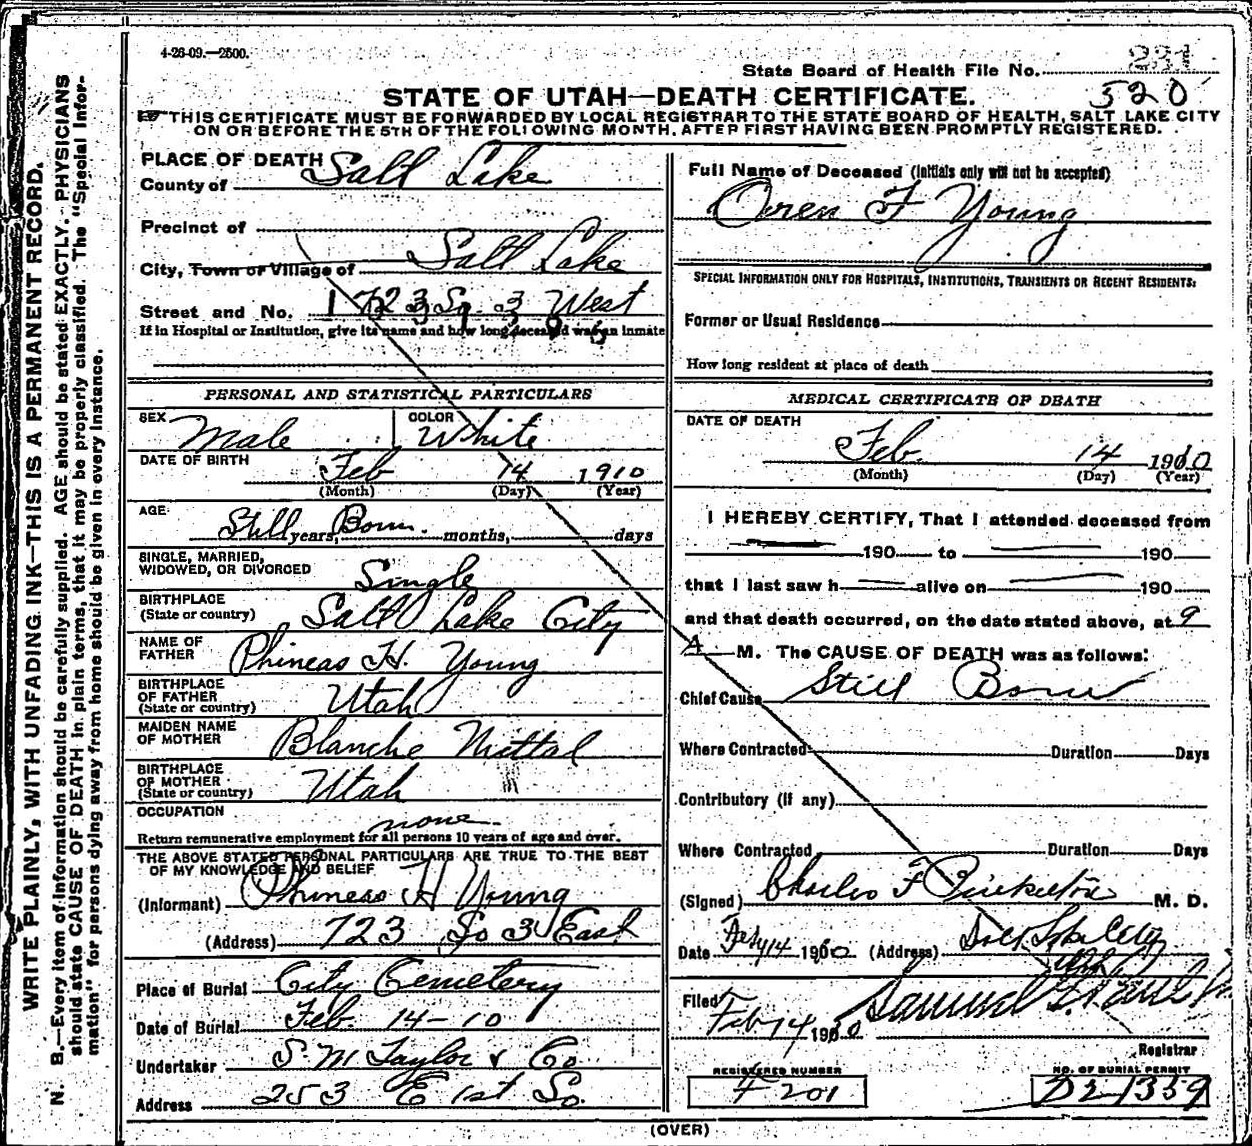 4-26-09.—2500.
231
State Board of Health File No.
520
STATE OF UTAH—DEATH CERTIFICATE.
☞THIS CERTIFICATE MUST BE FORWARDED BY LOCAL REGISTRAR TO THE STATE BOARD OF HEALTH, SALT LAKE CITY
ON OR BEFORE THE 5TH OF THE FOLLOWING MONTH, AFTER FIRST HAVING BEEN PROMPTLY REGISTERED.
WRITE PLAINLY, WITH UNFADING INK—THIS IS A PERMANENT RECORD.
N. B.—Every item of information should be carefully supplied. AGE should be stated EXACTLY. PHYSICIANS
should state CAUSE OF DEATH in plain terms, that it may be properly classified. The "Special Infor-
mation" for persons dying away from home should be given in every instance.
PLACE OF DEATH
County of Salt Lake
Precinct of
City, Town or Village of Salt Lake
Street and No. 723 So. 3 West
If in Hospital or Institution, give its name and how long deceased was an inmate
PERSONAL AND STATISTICAL PARTICULARS
SEX Male COLOR White
DATE OF BIRTH Feb 14 1910
(Month) (Day) (Year)
AGE Still years, Born months, days
SINGLE, MARRIED,
WIDOWED, OR DIVORCED Single
BIRTHPLACE
(State or country) Salt Lake City
NAME OF
FATHER Phineas H. Young
BIRTHPLACE
OF FATHER
(State or country) Utah
MAIDEN NAME
OF MOTHER Blanche
BIRTHPLACE
OF MOTHER
(State or country) Utah
OCCUPATION none
Return remunerative employment for all persons 10 years of age and over.
THE ABOVE STATED PERSONAL PARTICULARS ARE TRUE TO THE BEST
OF MY KNOWLEDGE AND BELIEF
(Informant) Phineas H Young
(Address) 723 So 3 East
Place of Burial City Cemetery
Date of Burial Feb. 14-10
Undertaker S. M Taylor & Co
Address 253 E 1st So.
Full Name of Deceased (Initials only will not be accepted)
Oren F Young
SPECIAL INFORMATION ONLY FOR HOSPITALS, INSTITUTIONS, TRANSIENTS OR RECENT RESIDENTS:
Former or Usual Residence
How long resident at place of death
MEDICAL CERTIFICATE OF DEATH
DATE OF DEATH
Feb. 14 1910
(Month) (Day) (Year)
I HEREBY CERTIFY, That I attended deceased from
190 to 190
that I last saw h alive on 190
and that death occurred, on the date stated above, at 9
A M. The CAUSE OF DEATH was as follows:
Chief Cause Still Born
Where Contracted Duration Days
Contributory (if any)
Where Contracted Duration Days
(Signed) Charles F Pinkerton M. D.
Date Feby 14 1910 (Address) Salt Lake City
Utah
Filed
Feb 14 1910
Registrar
REGISTERED NUMBER
F 201
NO. OF BURIAL PERMIT
D21359
(OVER)